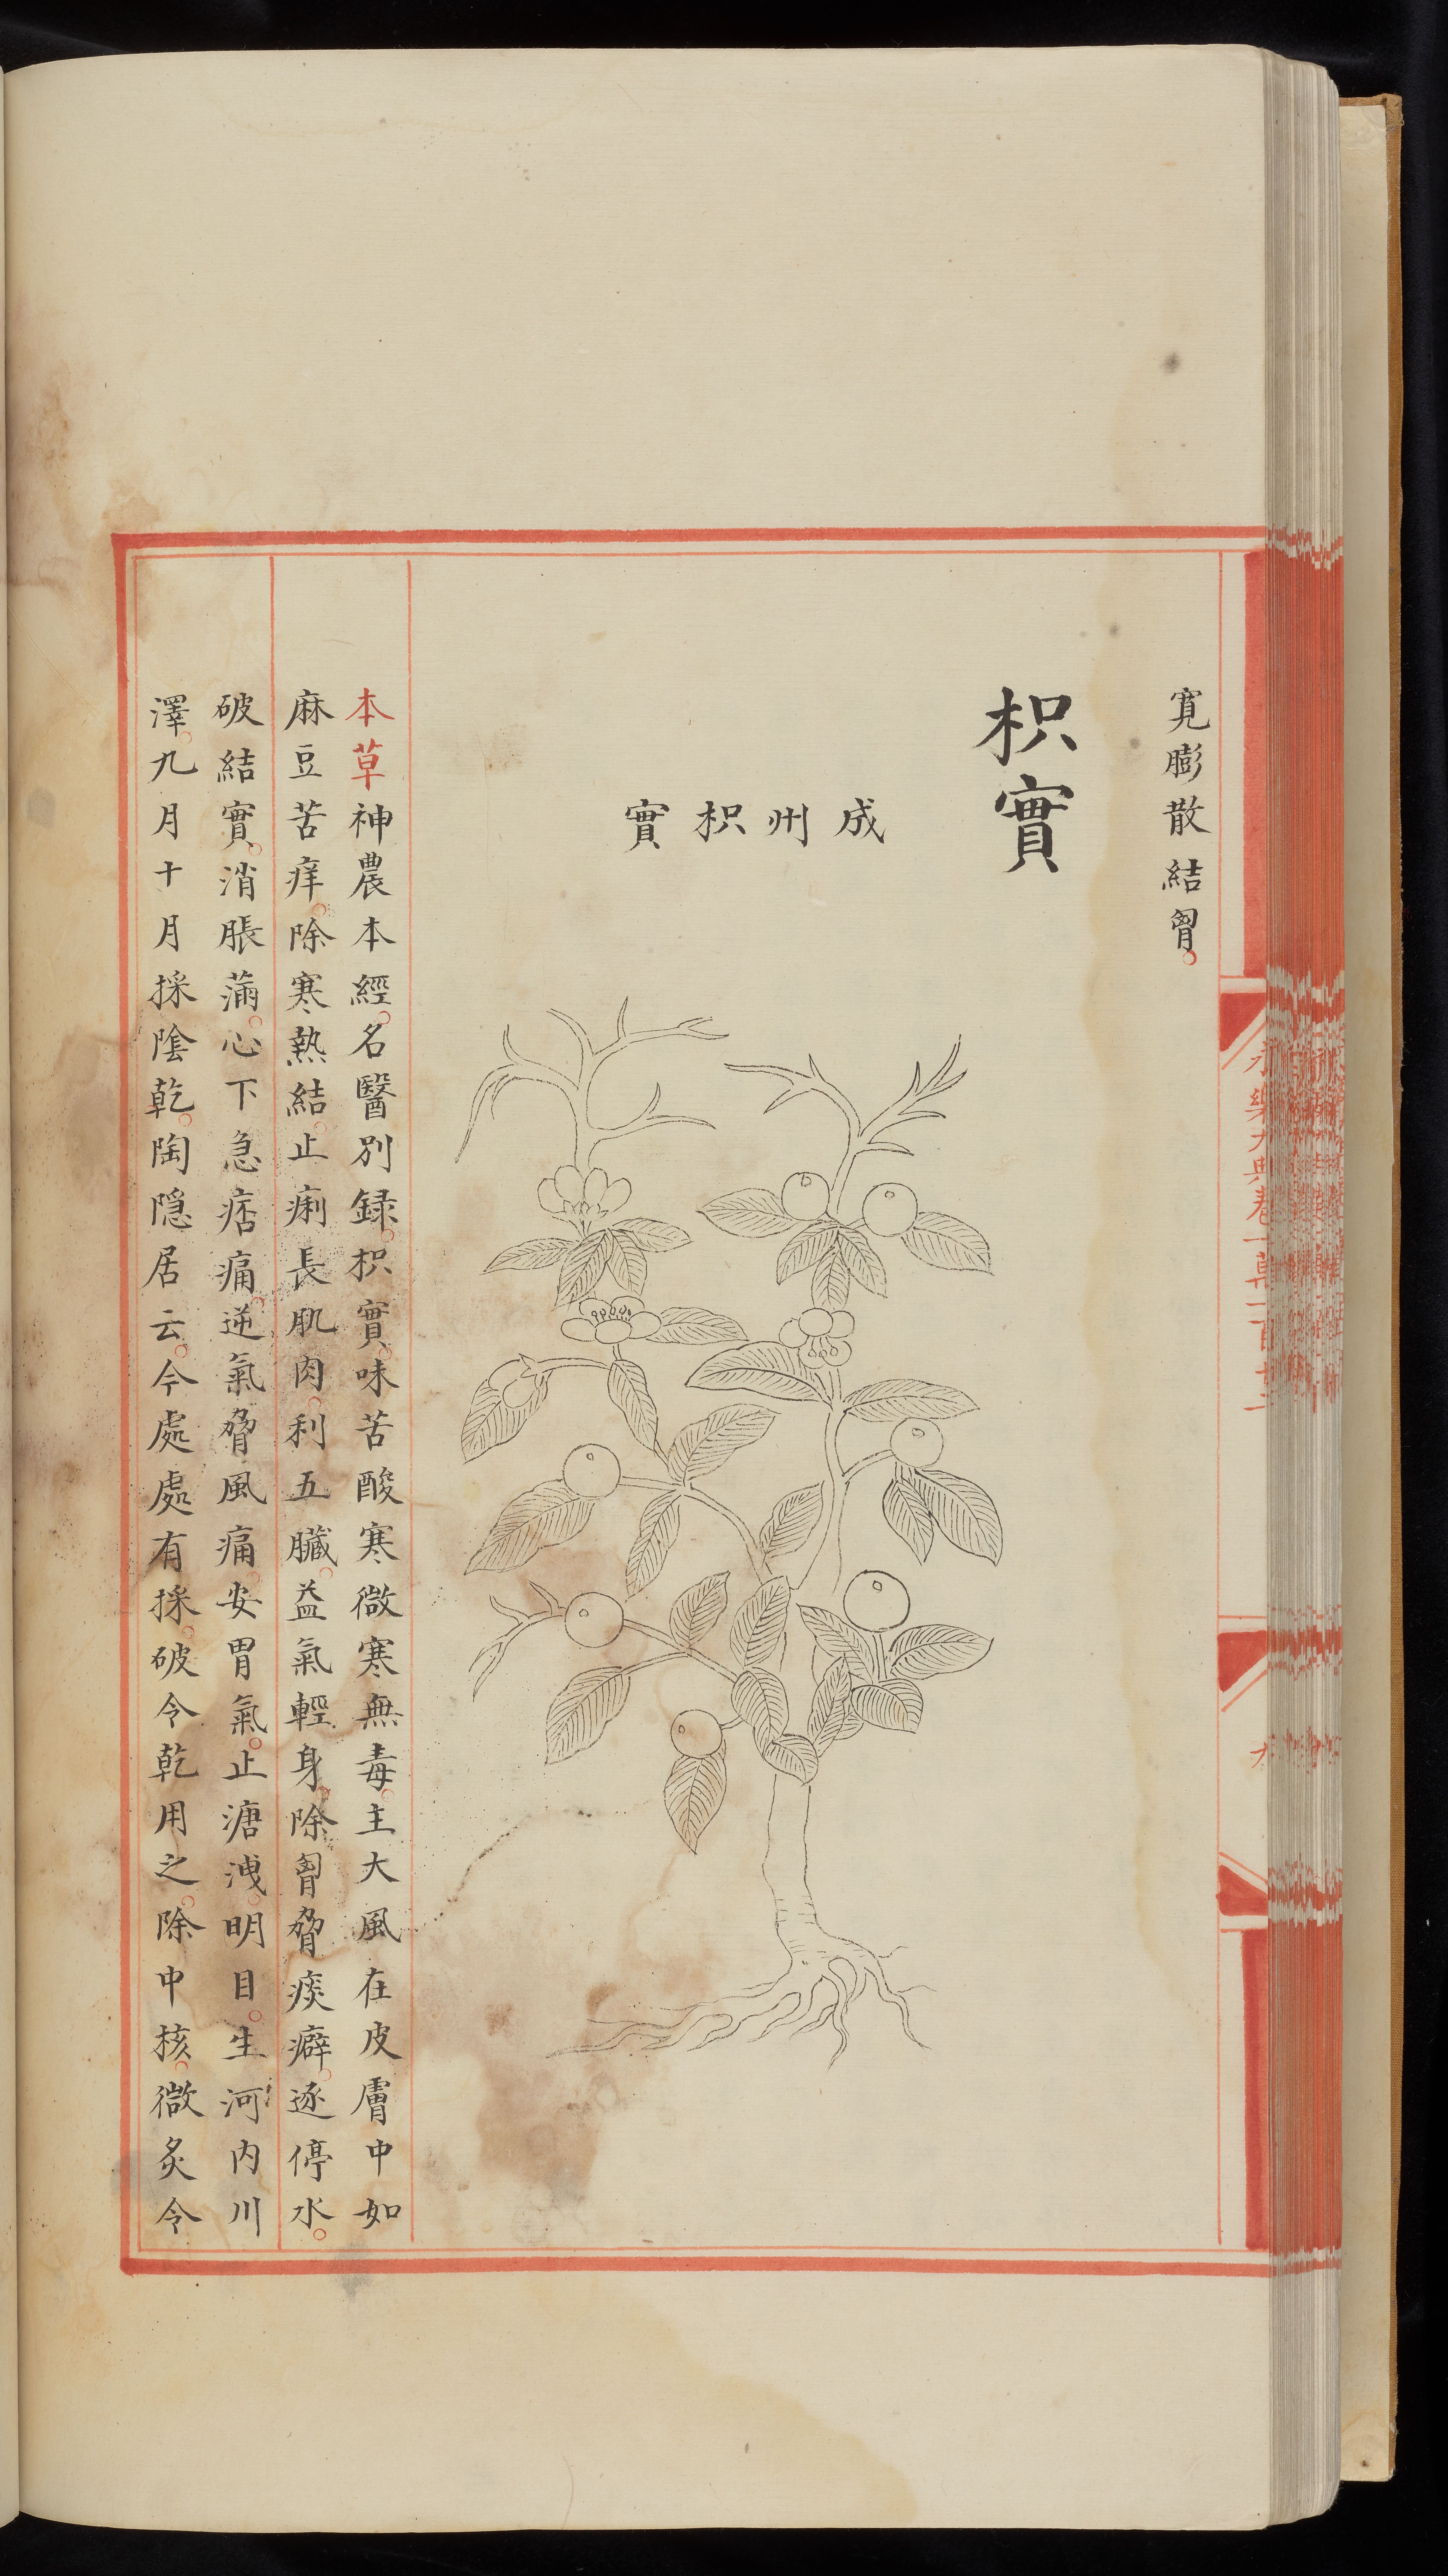 寛膨散結胷
枳實
成州枳實
本草神農本經名醫別録枳實味苦酸寒微寒無毒主大風在皮膚中如
麻豆苦痒除寒熱結止痢長肌肉利五臟益氣輕身除胷脅痰癖逐停水
破結實消脹滿心下急痞痛逆氣脅風痛安胃氣止溏洩明目生河内川
澤九月十月採陰乾陶隠居云今處處有採破令乾用之除中核微炙令
永樂大典卷一萬一百